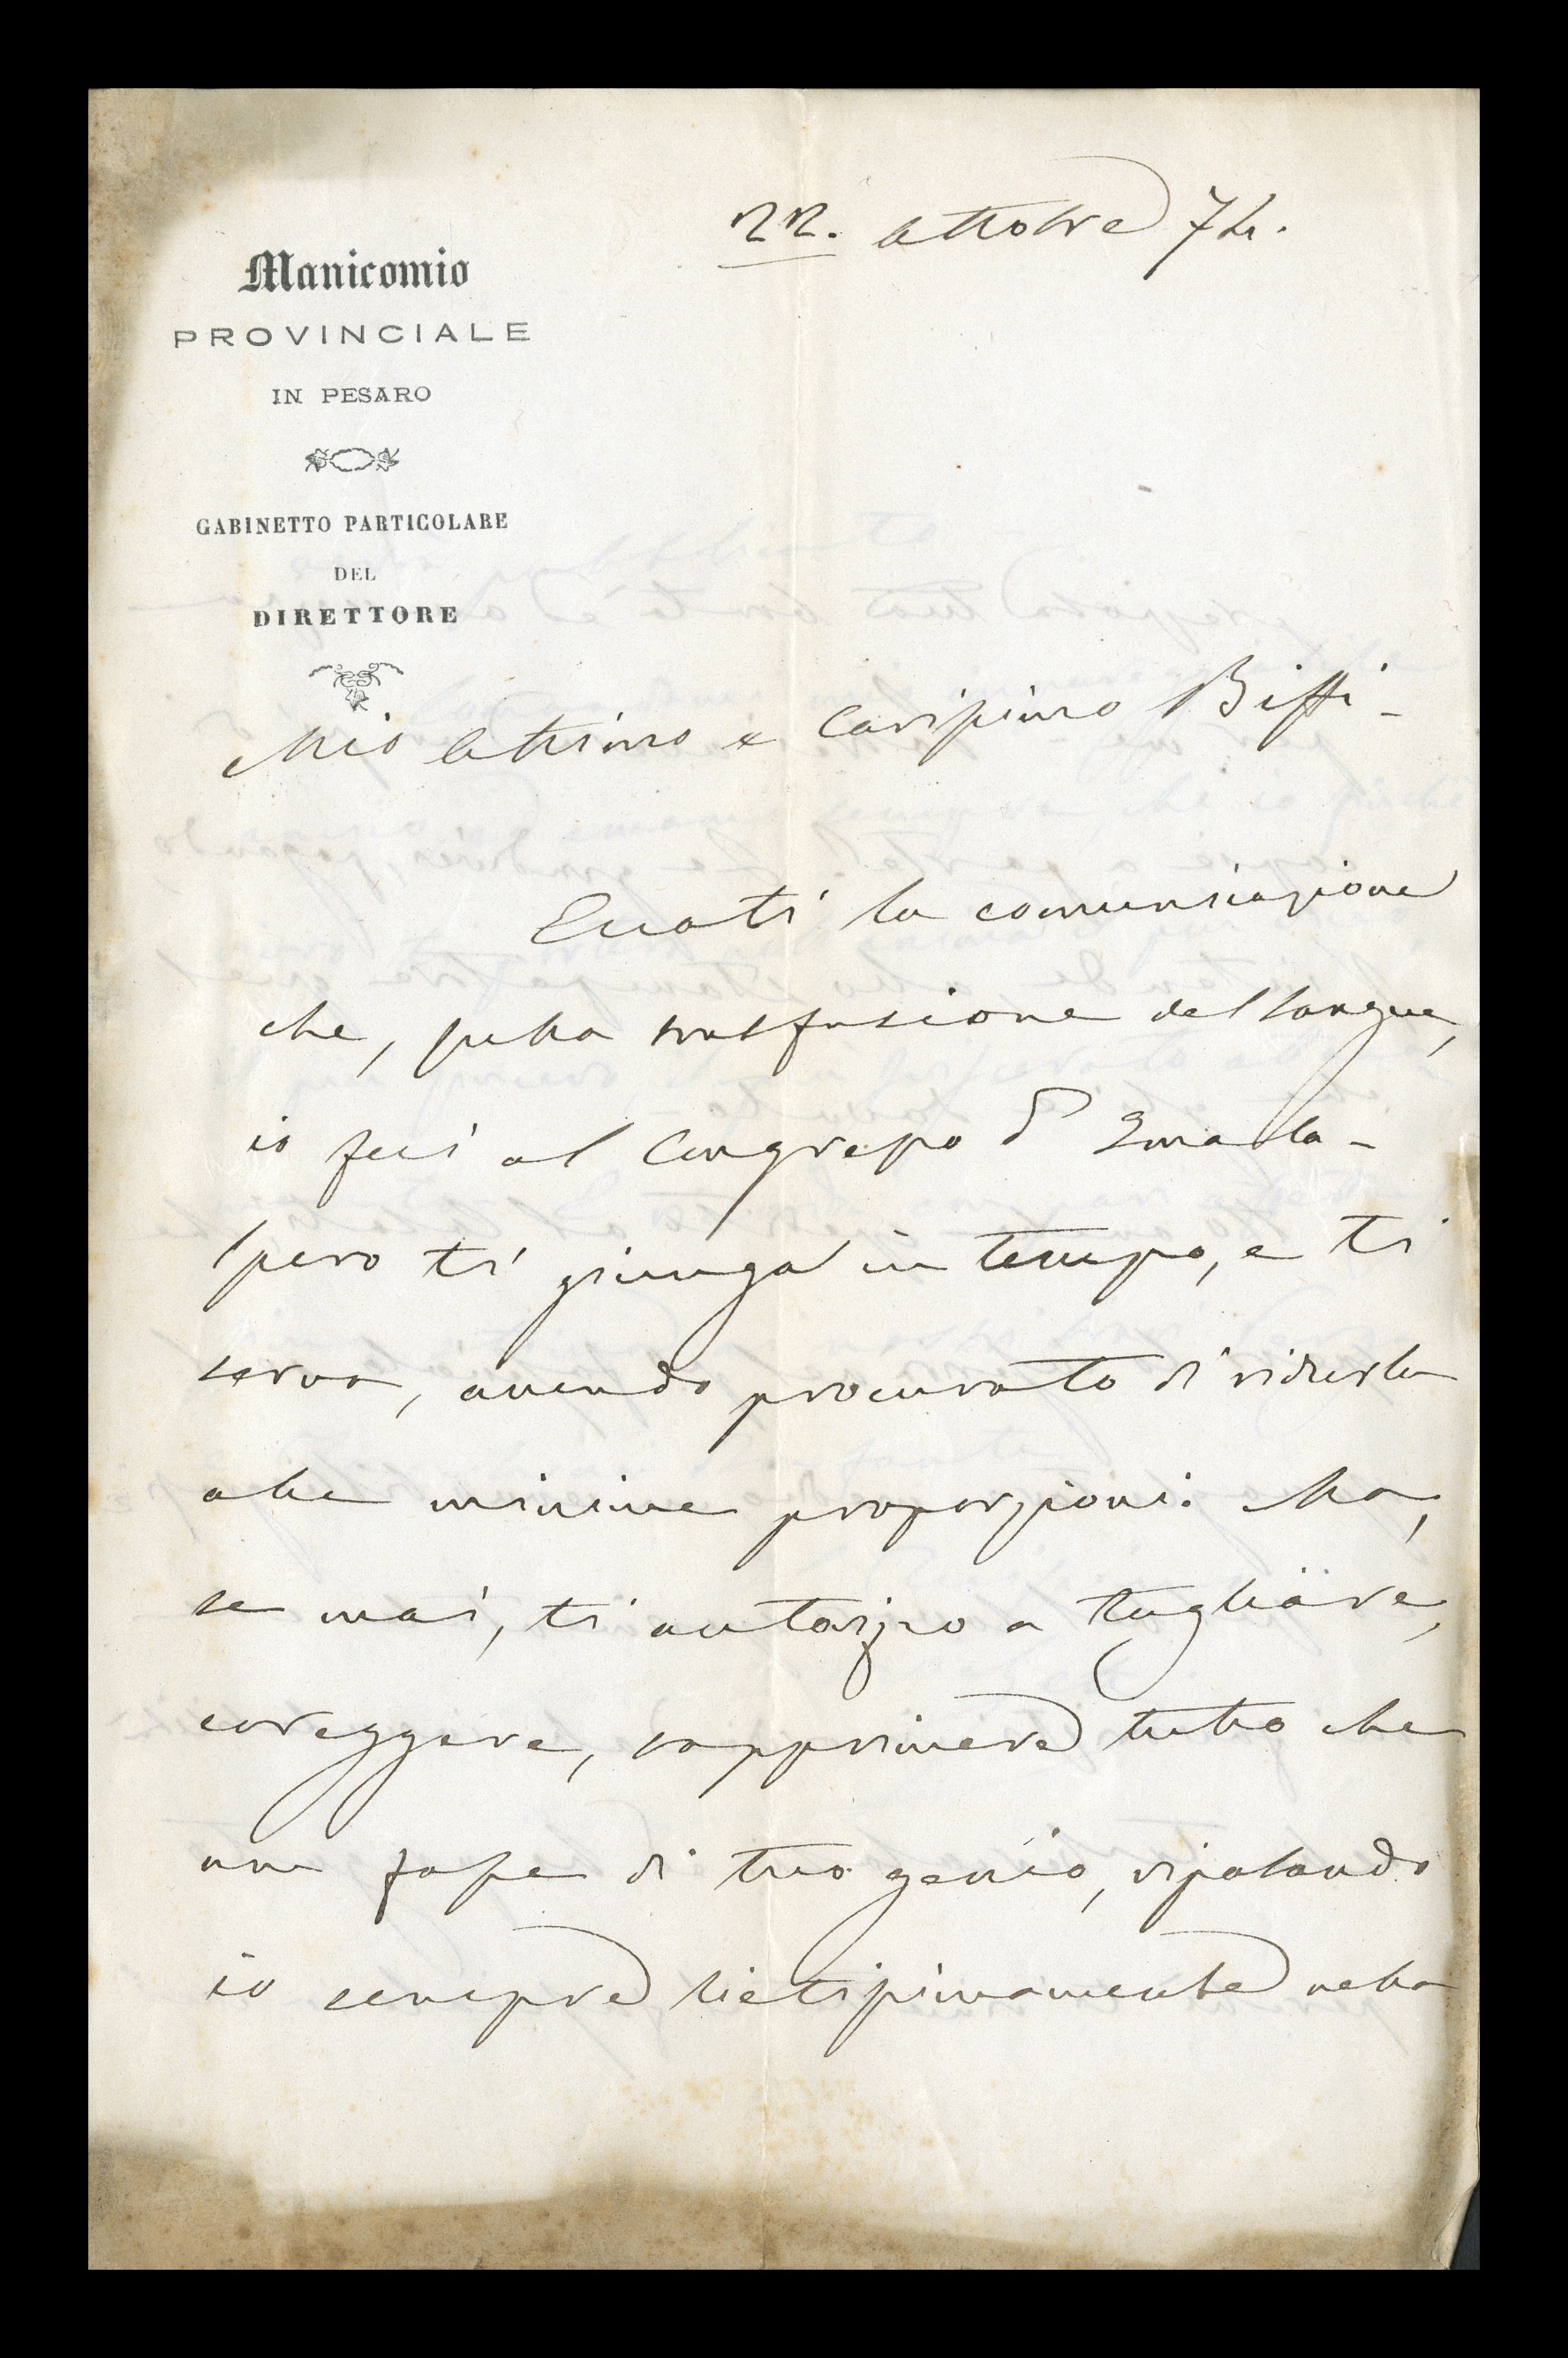 22. ottobre 74.
Manicomio
PROVINCIALE
IN PESARO
GABINETTO PARTICOLARE
DEL
DIRETTORE
Mio ottimo e carissimo Biffi -
Eccoti la comunicazione
che, sulla trasfusione del sangue,
io feci al Congresso d' Imola -
Spero ti giunga in tempo, e ti
serva, avendo procurato di ridurla
alle minime proporzioni. Ma,
se mai, ti autorizzo a tagliare,
coreggere, sopprimere tutto che
non fosse di tuo genio, riposando
io sempre lietissimamente nella